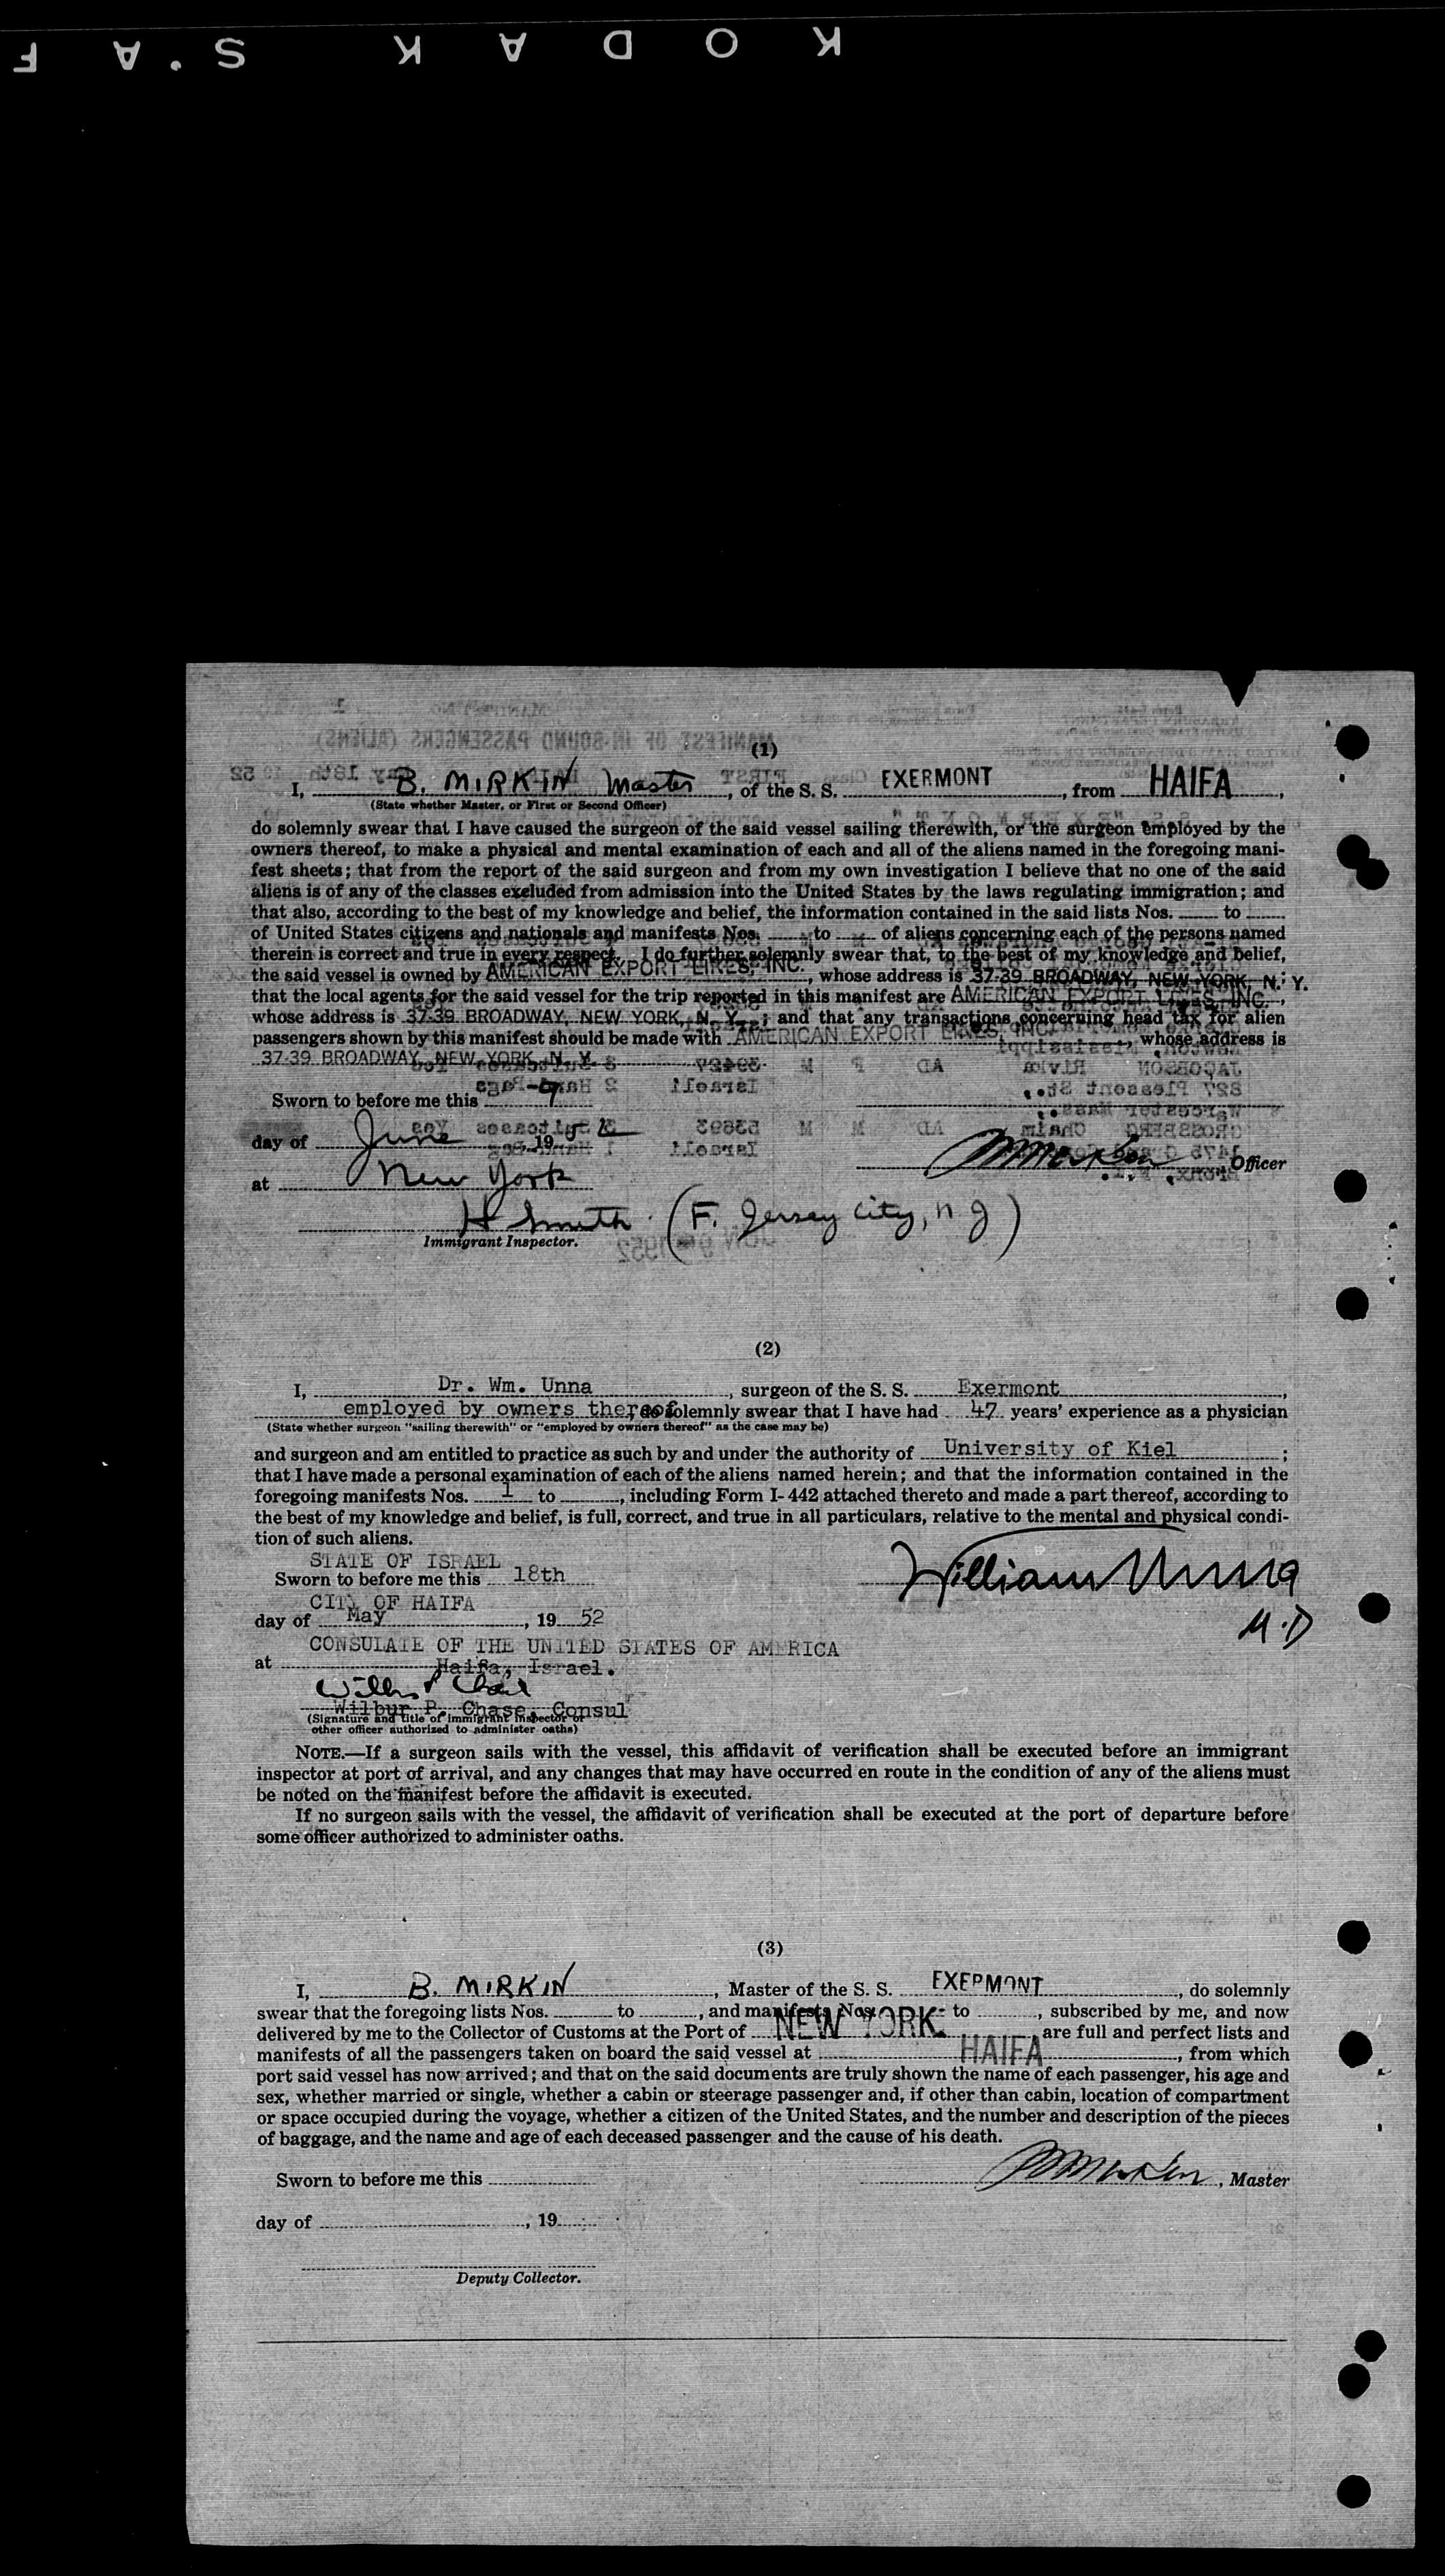 KODAK S.A F
(1)
I, B. MIRKIN Master, of the S. S. EXERMONT, from HAIFA,
(State whether Master, or First or Second Officer)
do solemnly swear that I have caused the surgeon of the said vessel sailing therewith, or the surgeon employed by the
owners thereof, to make a physical and mental examination of each and all of the aliens named in the foregoing mani-
fest sheets; that from the report of the said surgeon and from my own investigation I believe that no one of the said
aliens is of any of the classes excluded from admission into the United States by the laws regulating immigration; and
that also, according to the best of my knowledge and belief, the information contained in the said lists Nos. to
of United States citizens and nationals and manifests Nos. to of aliens concerning each of the persons named
therein is correct and true in every respect. I do further solemnly swear that, to the best of my knowledge and belief,
the said vessel is owned by AMERICAN EXPORT LINES, INC., whose address is 37-39 BROADWAY, NEW YORK, N. Y.
that the local agents for the said vessel for the trip reported in this manifest are AMERICAN EXPORT LINES, INC.,
whose address is 37-39 BROADWAY, NEW YORK, N. Y.; and that any transactions concerning head tax for alien
passengers shown by this manifest should be made with AMERICAN EXPORT LINES, INC., whose address is
37-39 BROADWAY, NEW YORK, N. Y.
Sworn to before me this 9
day of June, 19 52
Officer
at New York
H Smith (F. Jersey City, N J)
Immigrant Inspector.
(2)
I, Dr. Wm. Unna, surgeon of the S. S. Exermont,
employed by owners thereof, do solemnly swear that I have had 47 years' experience as a physician
(State whether surgeon "sailing therewith" or "employed by owners thereof" as the case may be)
and surgeon and am entitled to practice as such by and under the authority of University of Kiel;
that I have made a personal examination of each of the aliens named herein; and that the information contained in the
foregoing manifests Nos. 1 to, including Form I-442 attached thereto and made a part thereof, according to
the best of my knowledge and belief, is full, correct, and true in all particulars, relative to the mental and physical condi-
tion of such aliens.
STATE OF ISRAEL
Sworn to before me this 18th
William Unna
CITY OF HAIFA
day of May, 19 52
M.D
CONSULATE OF THE UNITED STATES OF AMERICA
at Haifa, Israel.
Wilbur P. Chase
Wilbur P. Chase, Consul
(Signature and title of immigrant inspector or
other officer authorized to administer oaths)
NOTE.—If a surgeon sails with the vessel, this affidavit of verification shall be executed before an immigrant
inspector at port of arrival, and any changes that may have occurred en route in the condition of any of the aliens must
be noted on the manifest before the affidavit is executed.
If no surgeon sails with the vessel, the affidavit of verification shall be executed at the port of departure before
some officer authorized to administer oaths.
(3)
I, B. MIRKIN, Master of the S. S. EXERMONT, do solemnly
swear that the foregoing lists Nos. to, and manifests Nos. to, subscribed by me, and now
delivered by me to the Collector of Customs at the Port of NEW YORK are full and perfect lists and
manifests of all the passengers taken on board the said vessel at HAIFA, from which
port said vessel has now arrived; and that on the said documents are truly shown the name of each passenger, his age and
sex, whether married or single, whether a cabin or steerage passenger and, if other than cabin, location of compartment
or space occupied during the voyage, whether a citizen of the United States, and the number and description of the pieces
of baggage, and the name and age of each deceased passenger and the cause of his death.
Sworn to before me this
BMirkin, Master
day of, 19
Deputy Collector.